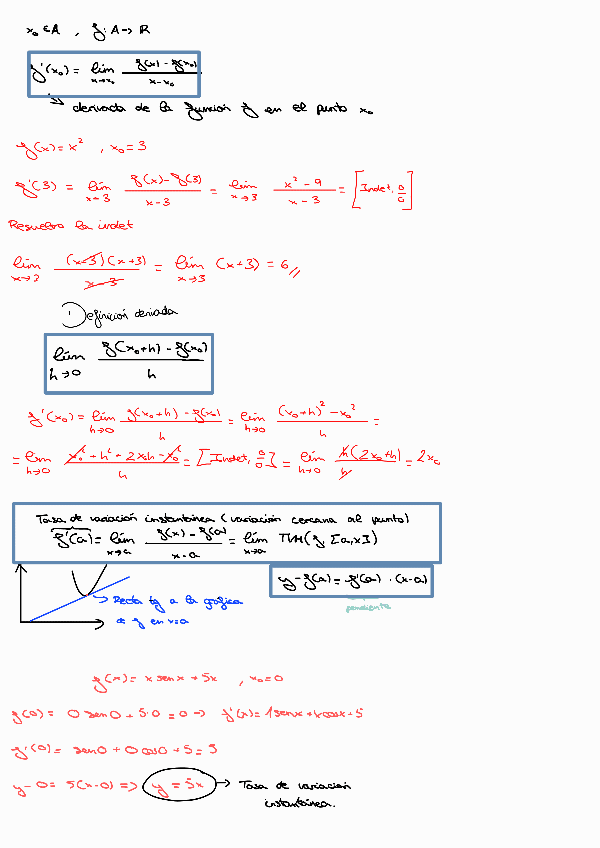 x₀ ∈ A , f: A → R
f'(x₀) = lím x→x₀ f(x) - f(x₀) / x - x₀
↳ derivada de la función f en el punto x₀
f(x) = x² , x₀ = 3
f'(3) = lím x→3 f(x) - f(3) / x - 3 = lím x→3 x² - 9 / x - 3 = [Indet. 0/0]
Resuelvo la indet
lím x→3 (x-3)(x+3) / x-3 = lím x→3 (x+3) = 6 //
Definición derivada
lím h→0 f(x₀+h) - f(x₀) / h
f'(x₀) = lím h→0 f(x₀+h) - f(x₀) / h = lím h→0 (x₀+h)² - x₀² / h =
= lím h→0 x₀² + h² + 2x₀h - x₀² / h = [Indet. 0/0] = lím h→0 h(2x₀+h) / h = 2x₀
Tasa de variación instantánea (variación cercana al punto)
f'(a) = lím x→a f(x) - f(a) / x - a = lím x→a TVM(f, [a,x])
y - f(a) = f'(a) · (x-a)
pendiente
→ Recta tg a la gráfica
de f en x=a
f(x) = x sen x + 5x , x₀ = 0
f(0) = 0 sen0 + 5·0 = 0 → f'(x) = 1 senx + x cosx + 5
f'(0) = sen0 + 0 cos0 + 5 = 5
y - 0 = 5(x-0) => y = 5x → Tasa de variación
instantánea.